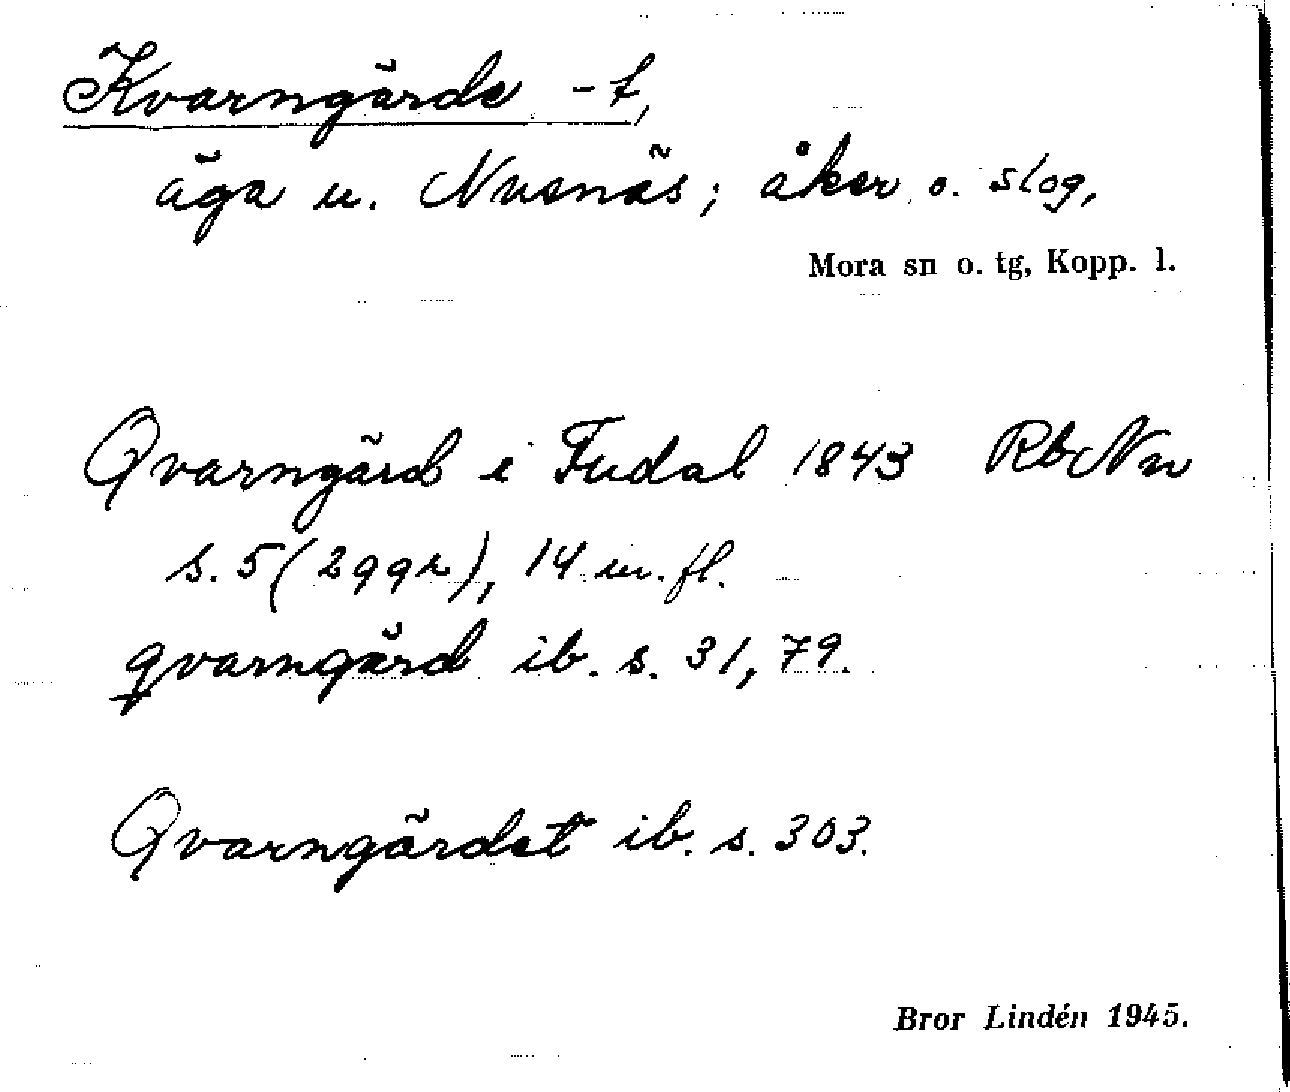 Kvarngärde -t,
äga u. Nusnäs; åker o. slog,
Mora sn o. tg, Kopp. l.
Qvarngärd i Fudal 1843 RbNn
s. 5 (2 ggr), 14 m. fl.
qvarngärd ib. s. 31, 79.
Qvarngärdet ib. s. 303.
Bror Lindén 1945.